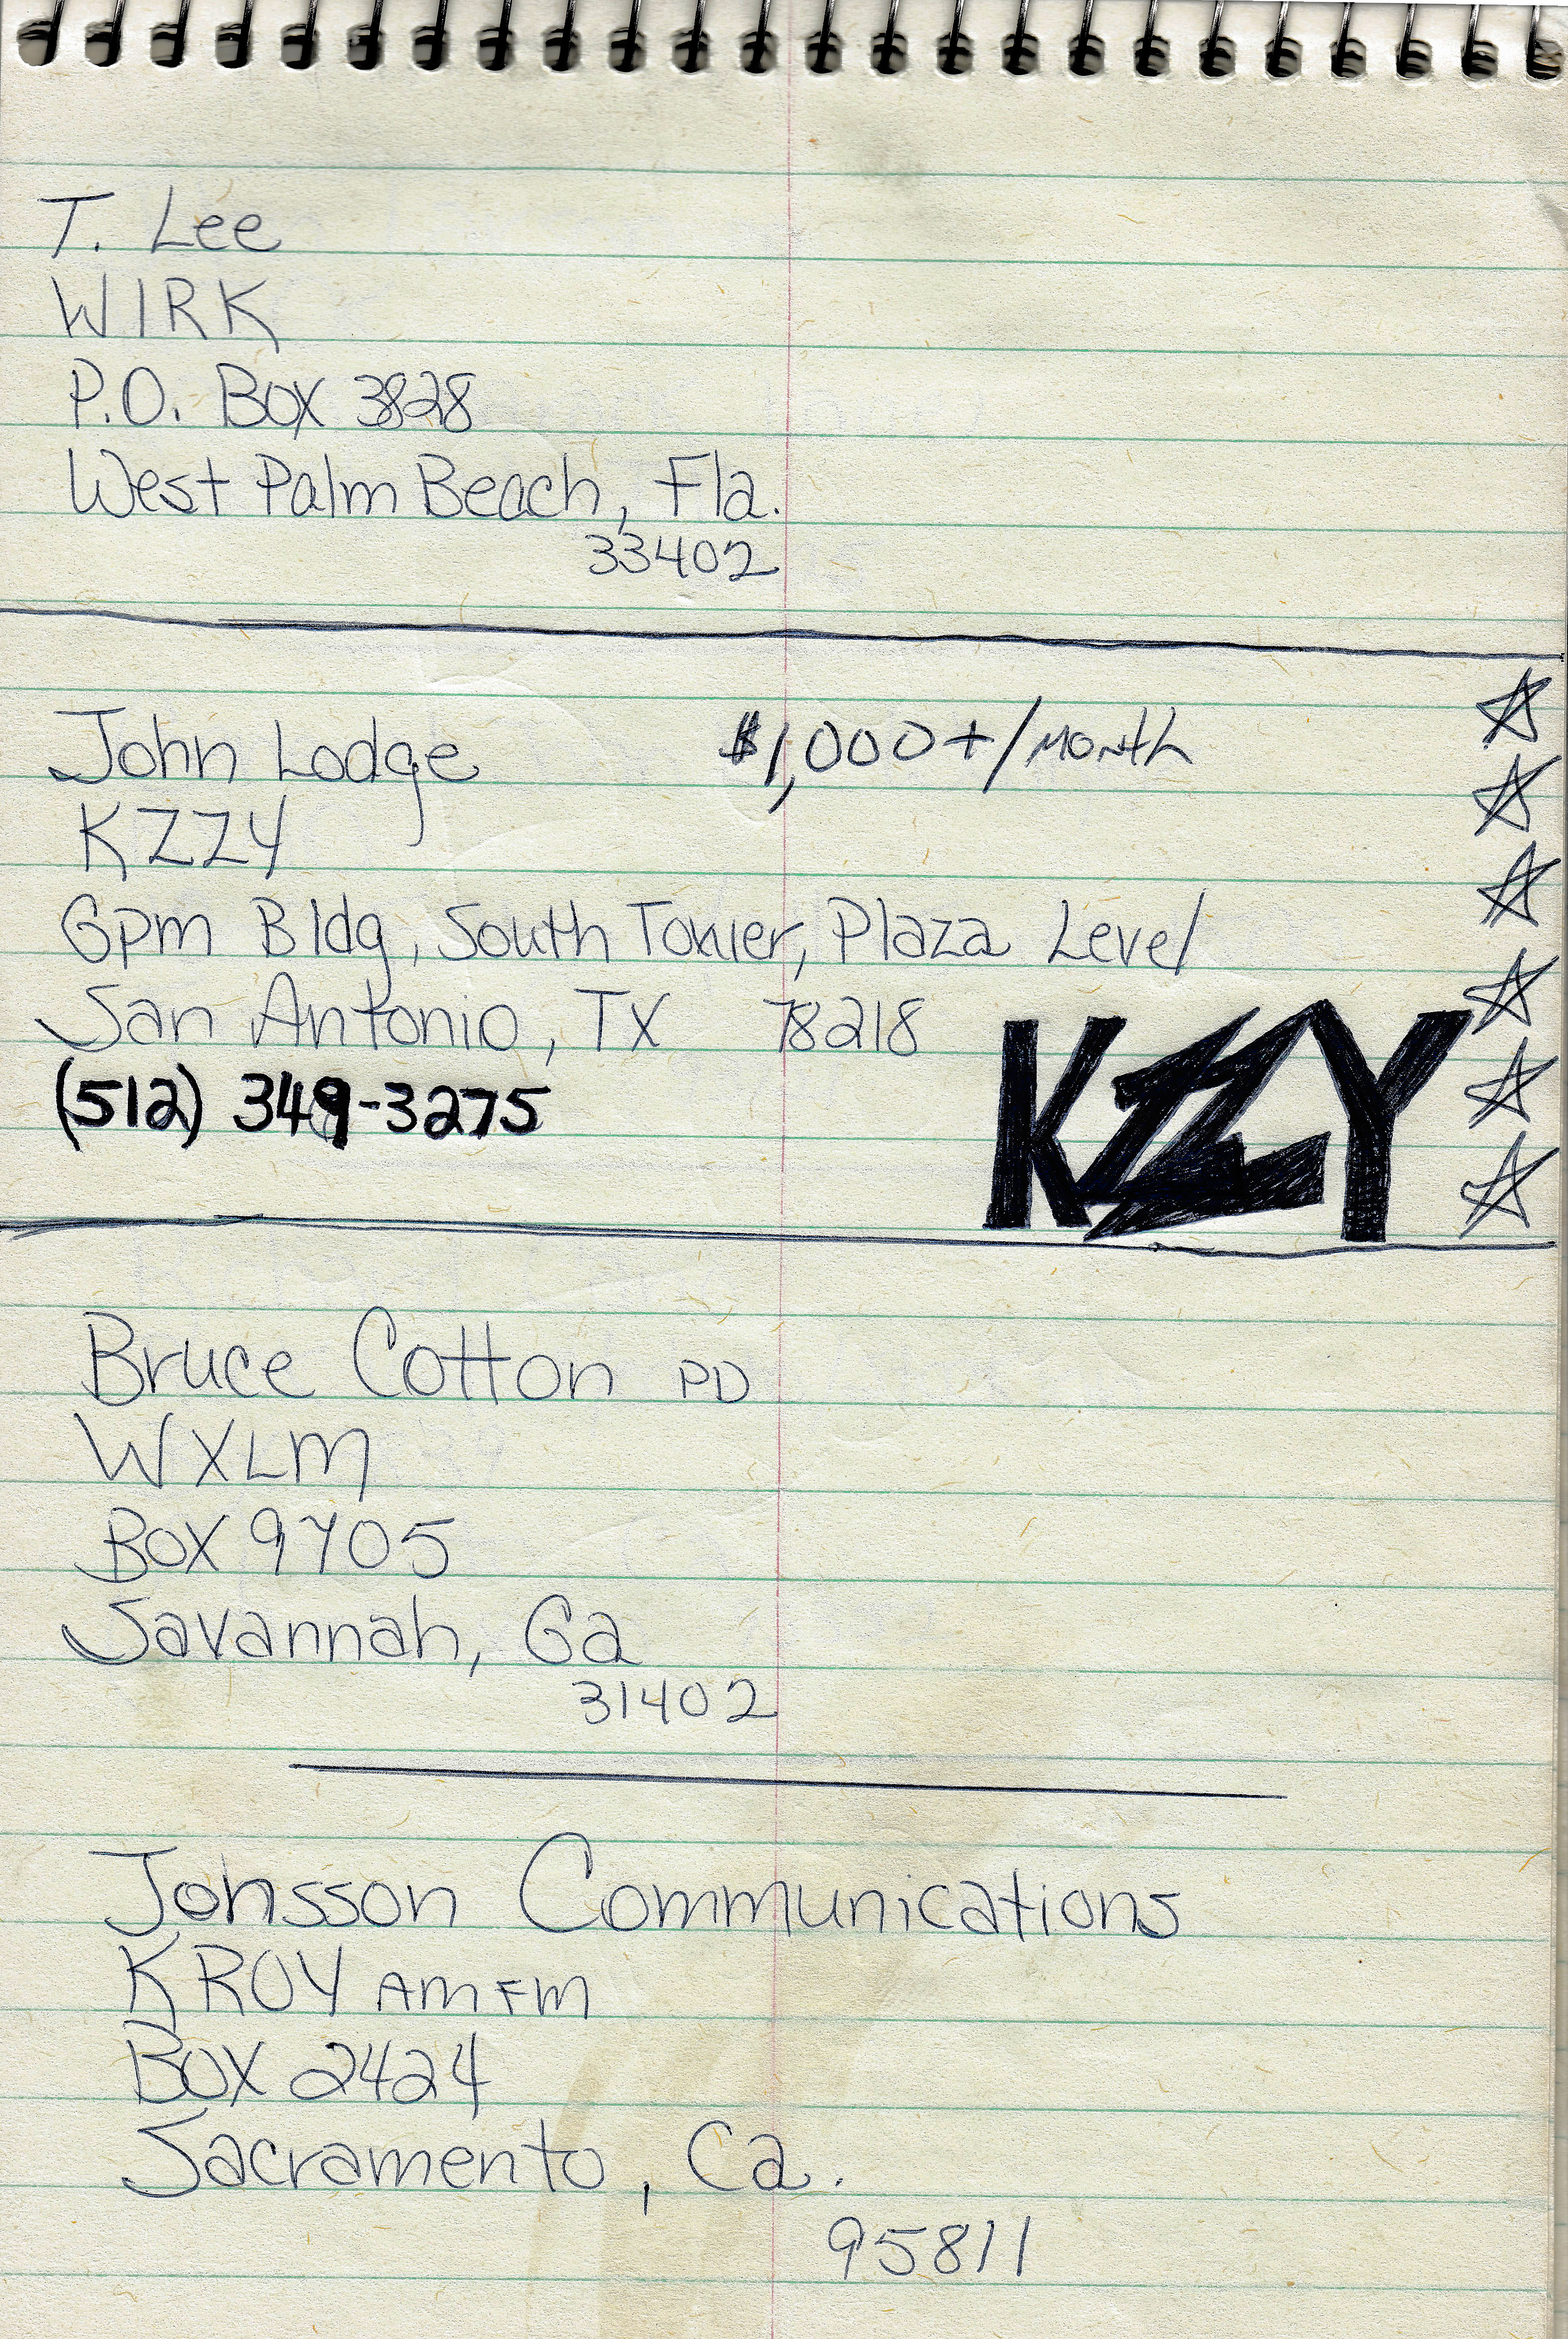 T. Lee
WIRK
P.O. Box 3828
West Palm Beach, Fla.
33402
John Lodge $1,000+/month
KZZY
Gpm Bldg, South Tower, Plaza Level
San Antonio, TX 78218
(512) 349-3275
KZZY
Bruce Cotton PD
WXLM
Box 9705
Savannah, Ga
31402
Jonsson Communications
KROY AM FM
Box 2424
Sacramento, Ca.
95811